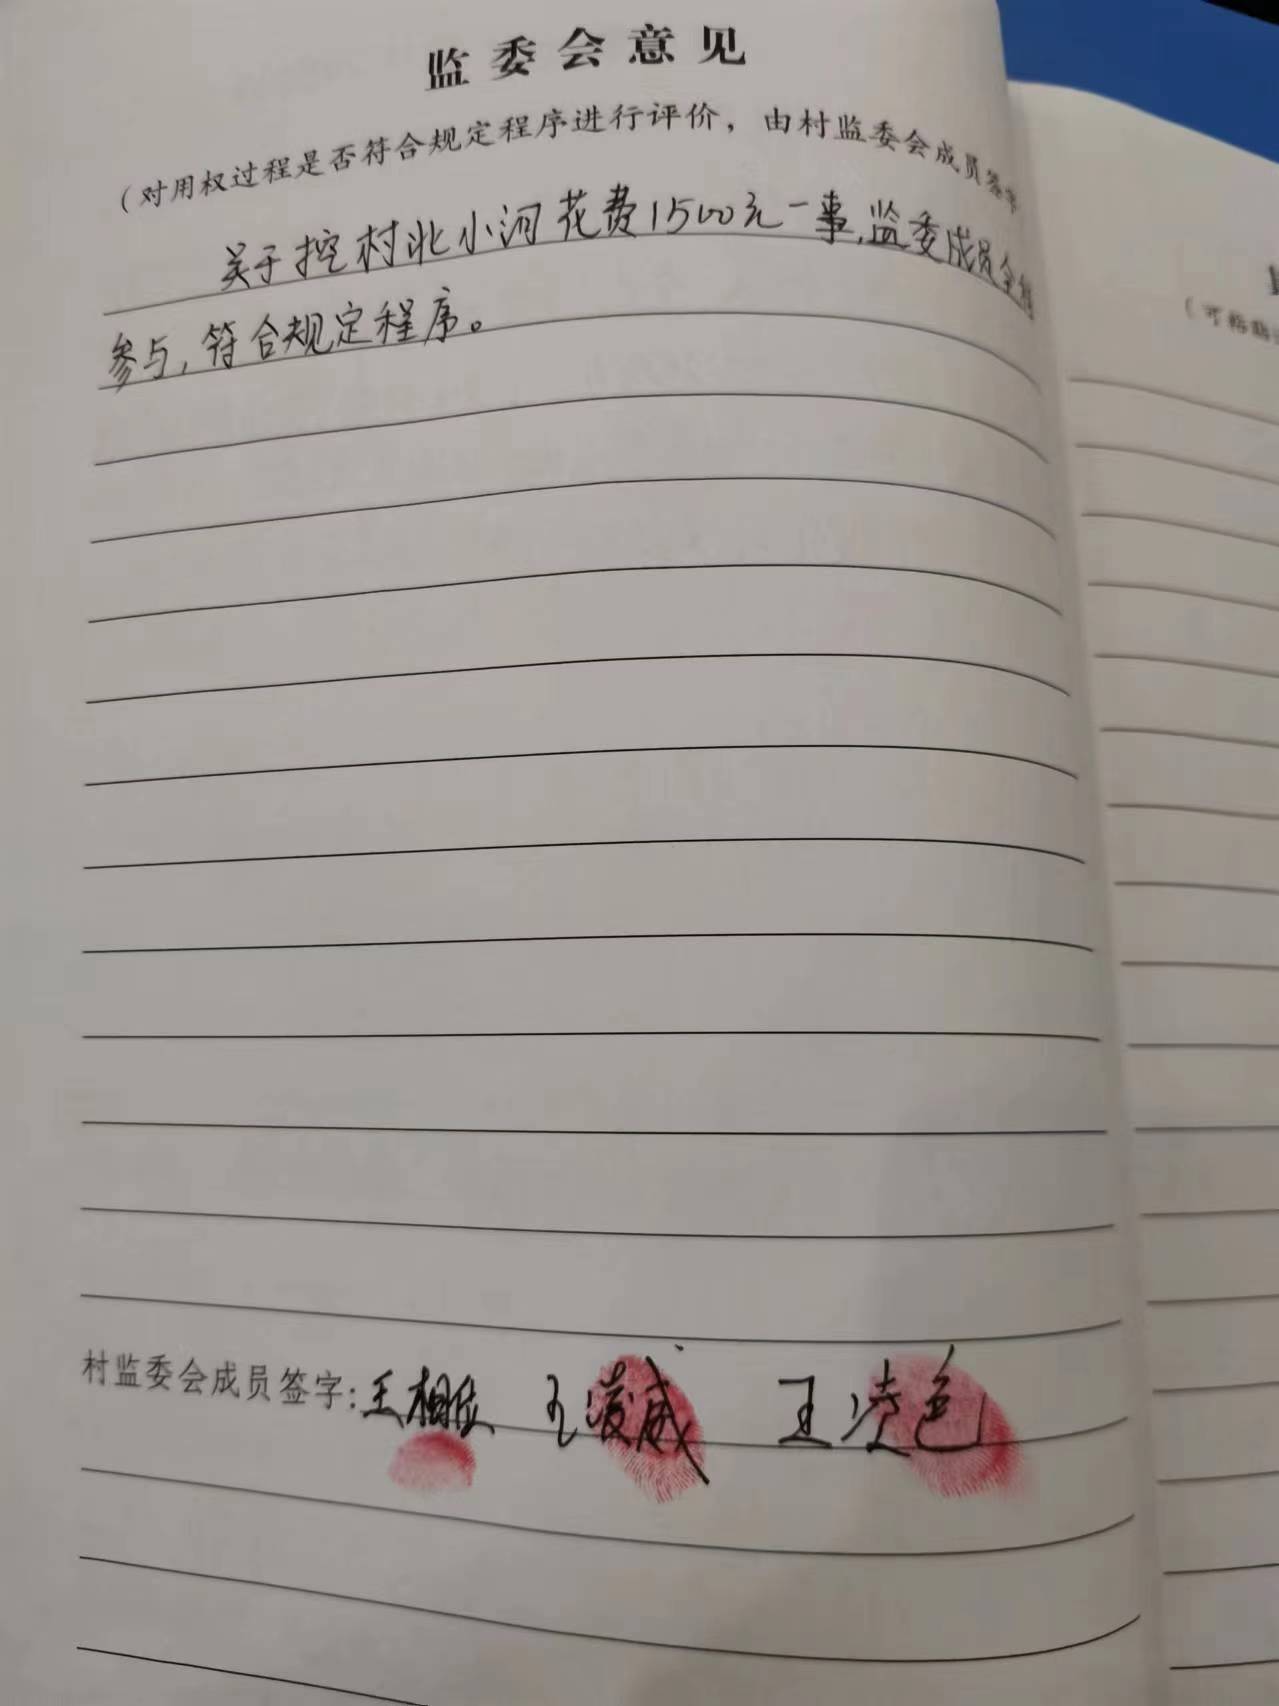 监委会意见
（对用权过程是否符合规定程序进行评价，由村监委会成员签字
关于挖村北小河花费1500元一事,监委成员全程
参与,符合规定程序。
村监委会成员签字:王相位 王凌威 王凌色
（可粘贴